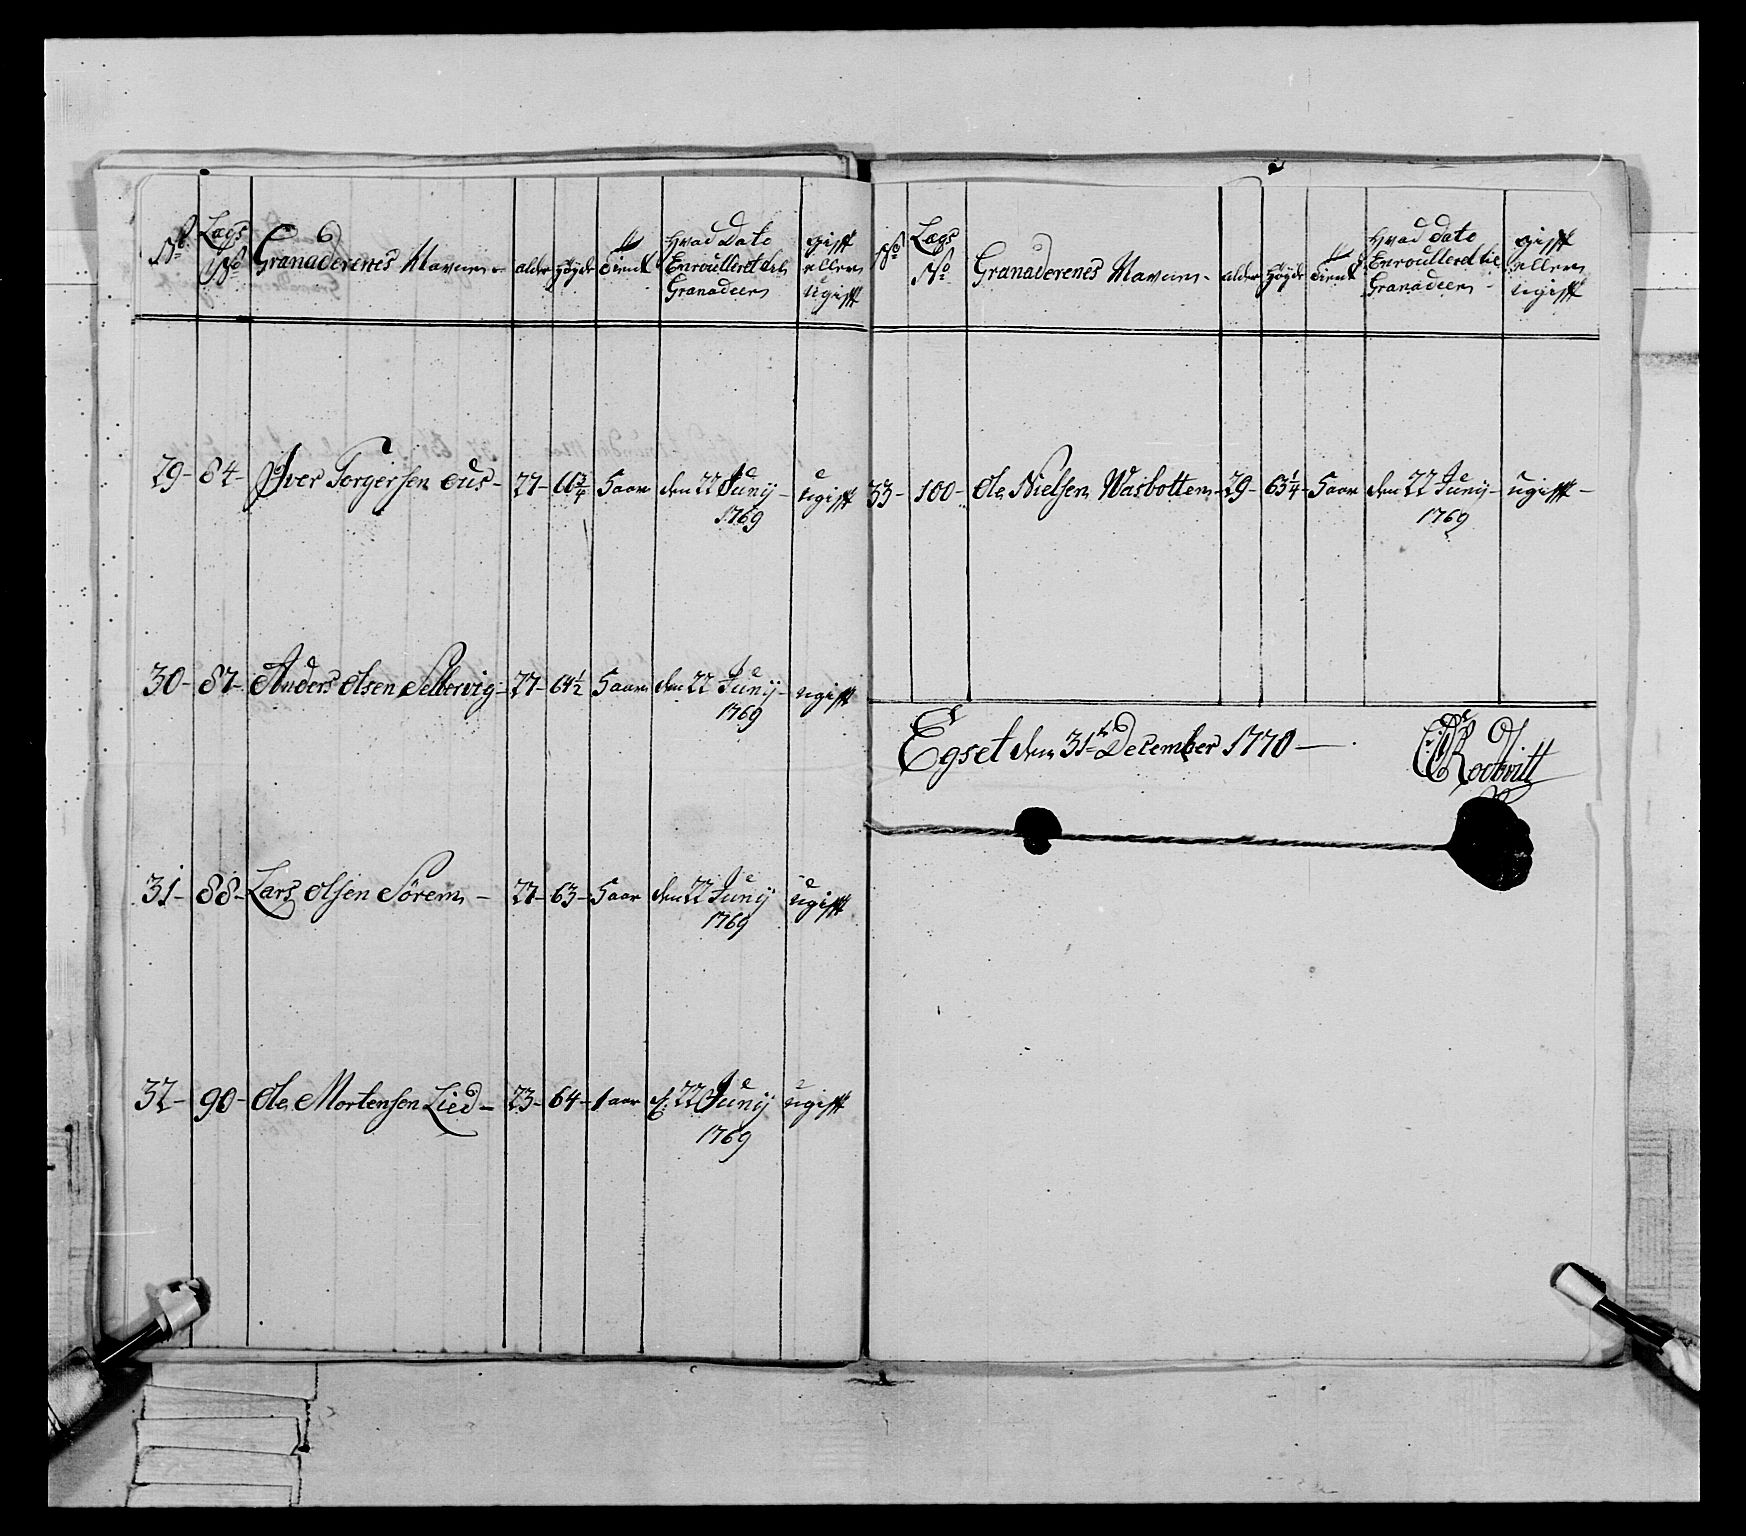 No
Lægs No
Granaderenes Navne
alder
Høyde
Tient
Hvad Dato Enroulleret til Granadeer
gifft eller ugifft
29- 84- Iver Torgersen Aus- 27- 60¾ 5 aar den 22 Juny 1769 ugifft
30- 87- Anders Olsen Sellervig- 27- 64½ 5 aar den 22 Juny 1769 ugifft
31- 88- Lars Olsen Sørem- 27- 63- 5 aar den 22 Juny 1769 ugifft
32- 90- Ole Mortensen Lied- 23- 64- 1 aar d: 22 Juny 1769 ugifft
No
Lægs No
Granaderenes Navne-
alder
Høyde
Tient
Hvad dato Enroulleret til Granadeer-
gifft eller ugifft
33- 100- Ole Nielsen Wasbotten- 29- 63¼- 5 aar den 22 Juny 1769 ugifft-
Egset den 31te December 1770-